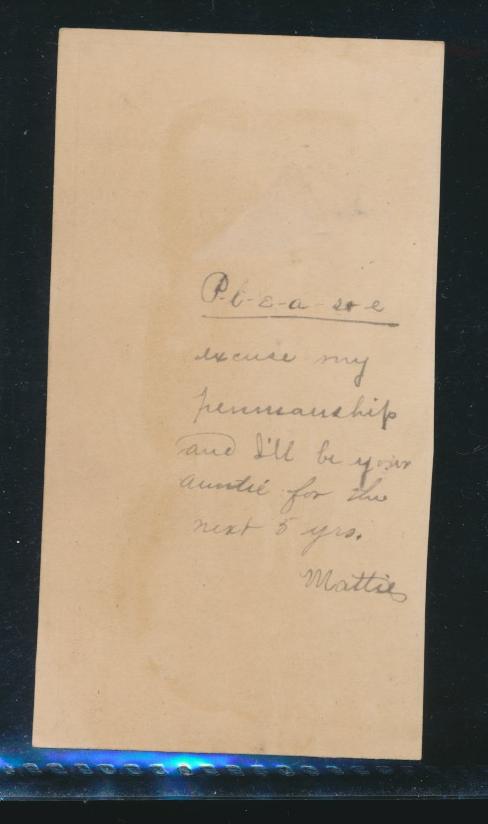 P-l-e-a-s-e
excuse my
penmanship
and I'll be your
auntie for the
next 5 yrs.
Mattie